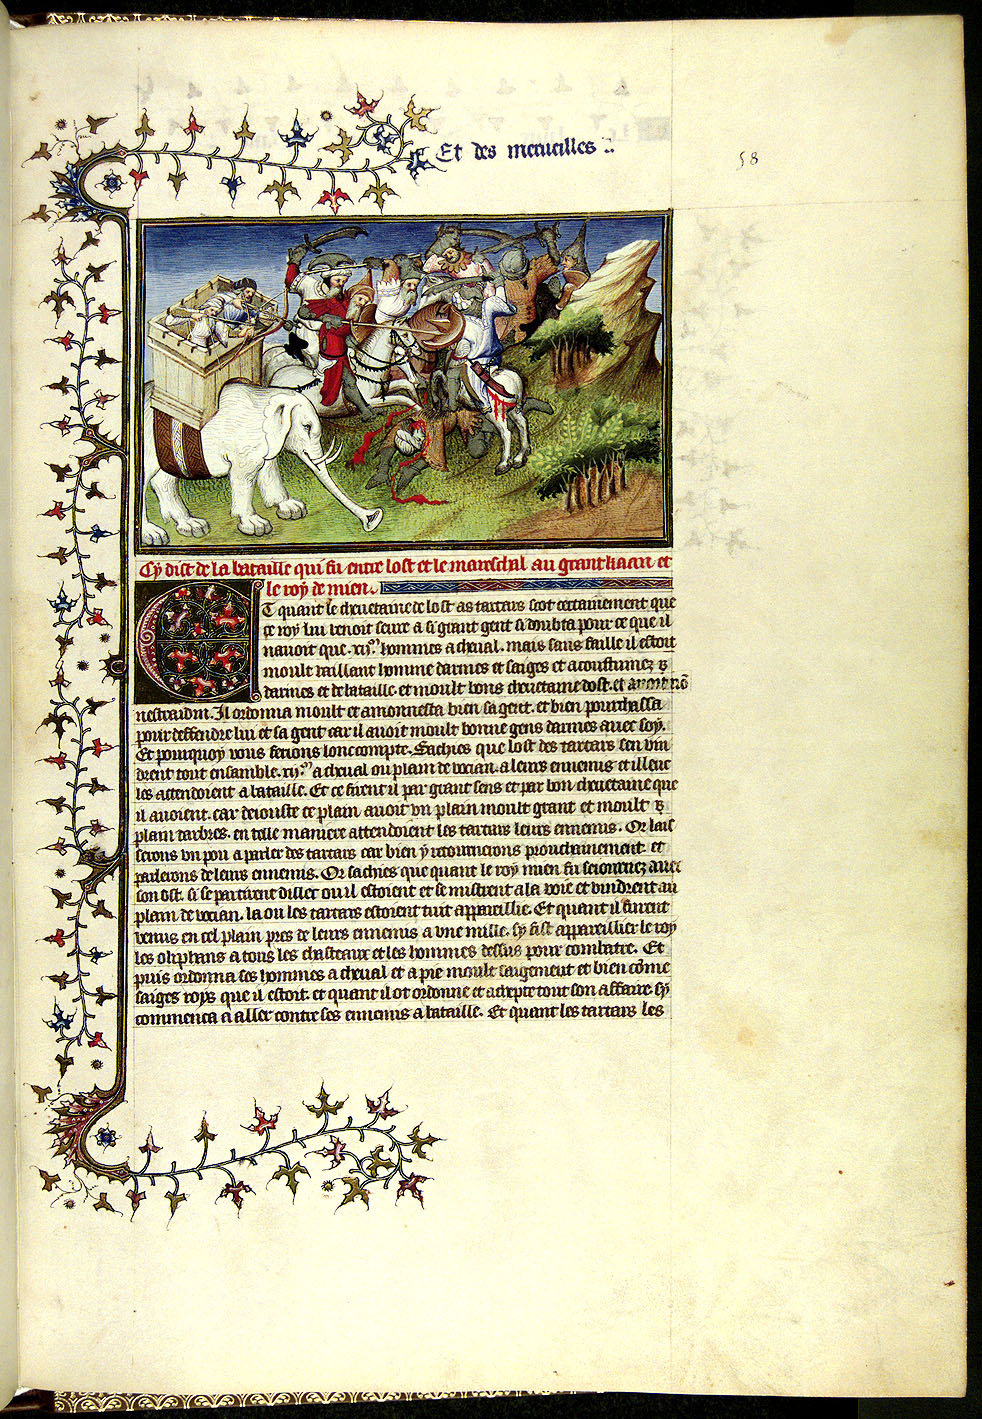 Et des merueilles
58
Cy dist de la bataille qui fu entre lost et le mareschal au grant kaan et
le roy de mien.
Et quant le cheuetaine de lost as tartars sot certainement que
ce roy lui venoit seure a si grant gent si doubta pour ce que il
nauoit que .xij. hommes a cheual. mais sans faille il estoit
moult vaillant homme darmes et saiges et acoustumez
darmes et de bataille. et moult bons cheuetaine dost. et
Il ordonna moult et amonnesta bien sa gent. et bien pourchassa
pour deffendre lui et sa gent car il auoit moult bonne gens darmes auec soy.
Et pourquoy vous feroions lonc compte. Sachies que lost des tartars sen vin
drent tout ensamble .xij. a cheual ou plain de vocian. a leurs ennemis et illeuc
les attendoient a bataille. Et ce firent il par grant sens et par bon cheuetaine que
il auoient. car deiouste ce plain auoit vn plain moult grant et moult
plain darbres. en telle maniere attendoient les tartars leurs ennemis. Or lais
serons vn pou a parler des tartars car bien y retournerons prouchainement et
parlerons de leurs ennemis. Or sachies que quant le roy mien fu seiournez auec
son ost. si se partirent dillec ou il estoient et se mistrent a la voie et vindrent au
plain de vocian. la ou les tartars estoient tuit appareillie. Et quant il furent
venus en cel plain pres de leurs ennemis a vne mille. sy fist appareillier le roy
les oliphans a tous les chasteaux et les hommes dessus pour combatre. Et
puis ordonna ses hommes a cheual et a pie moult saigement et bien come
saiges roys que il estoit. et quant il ot ordonne et tout son affaire sy
commenca a aller contre ses ennemis a bataille. Et quant les tartars les